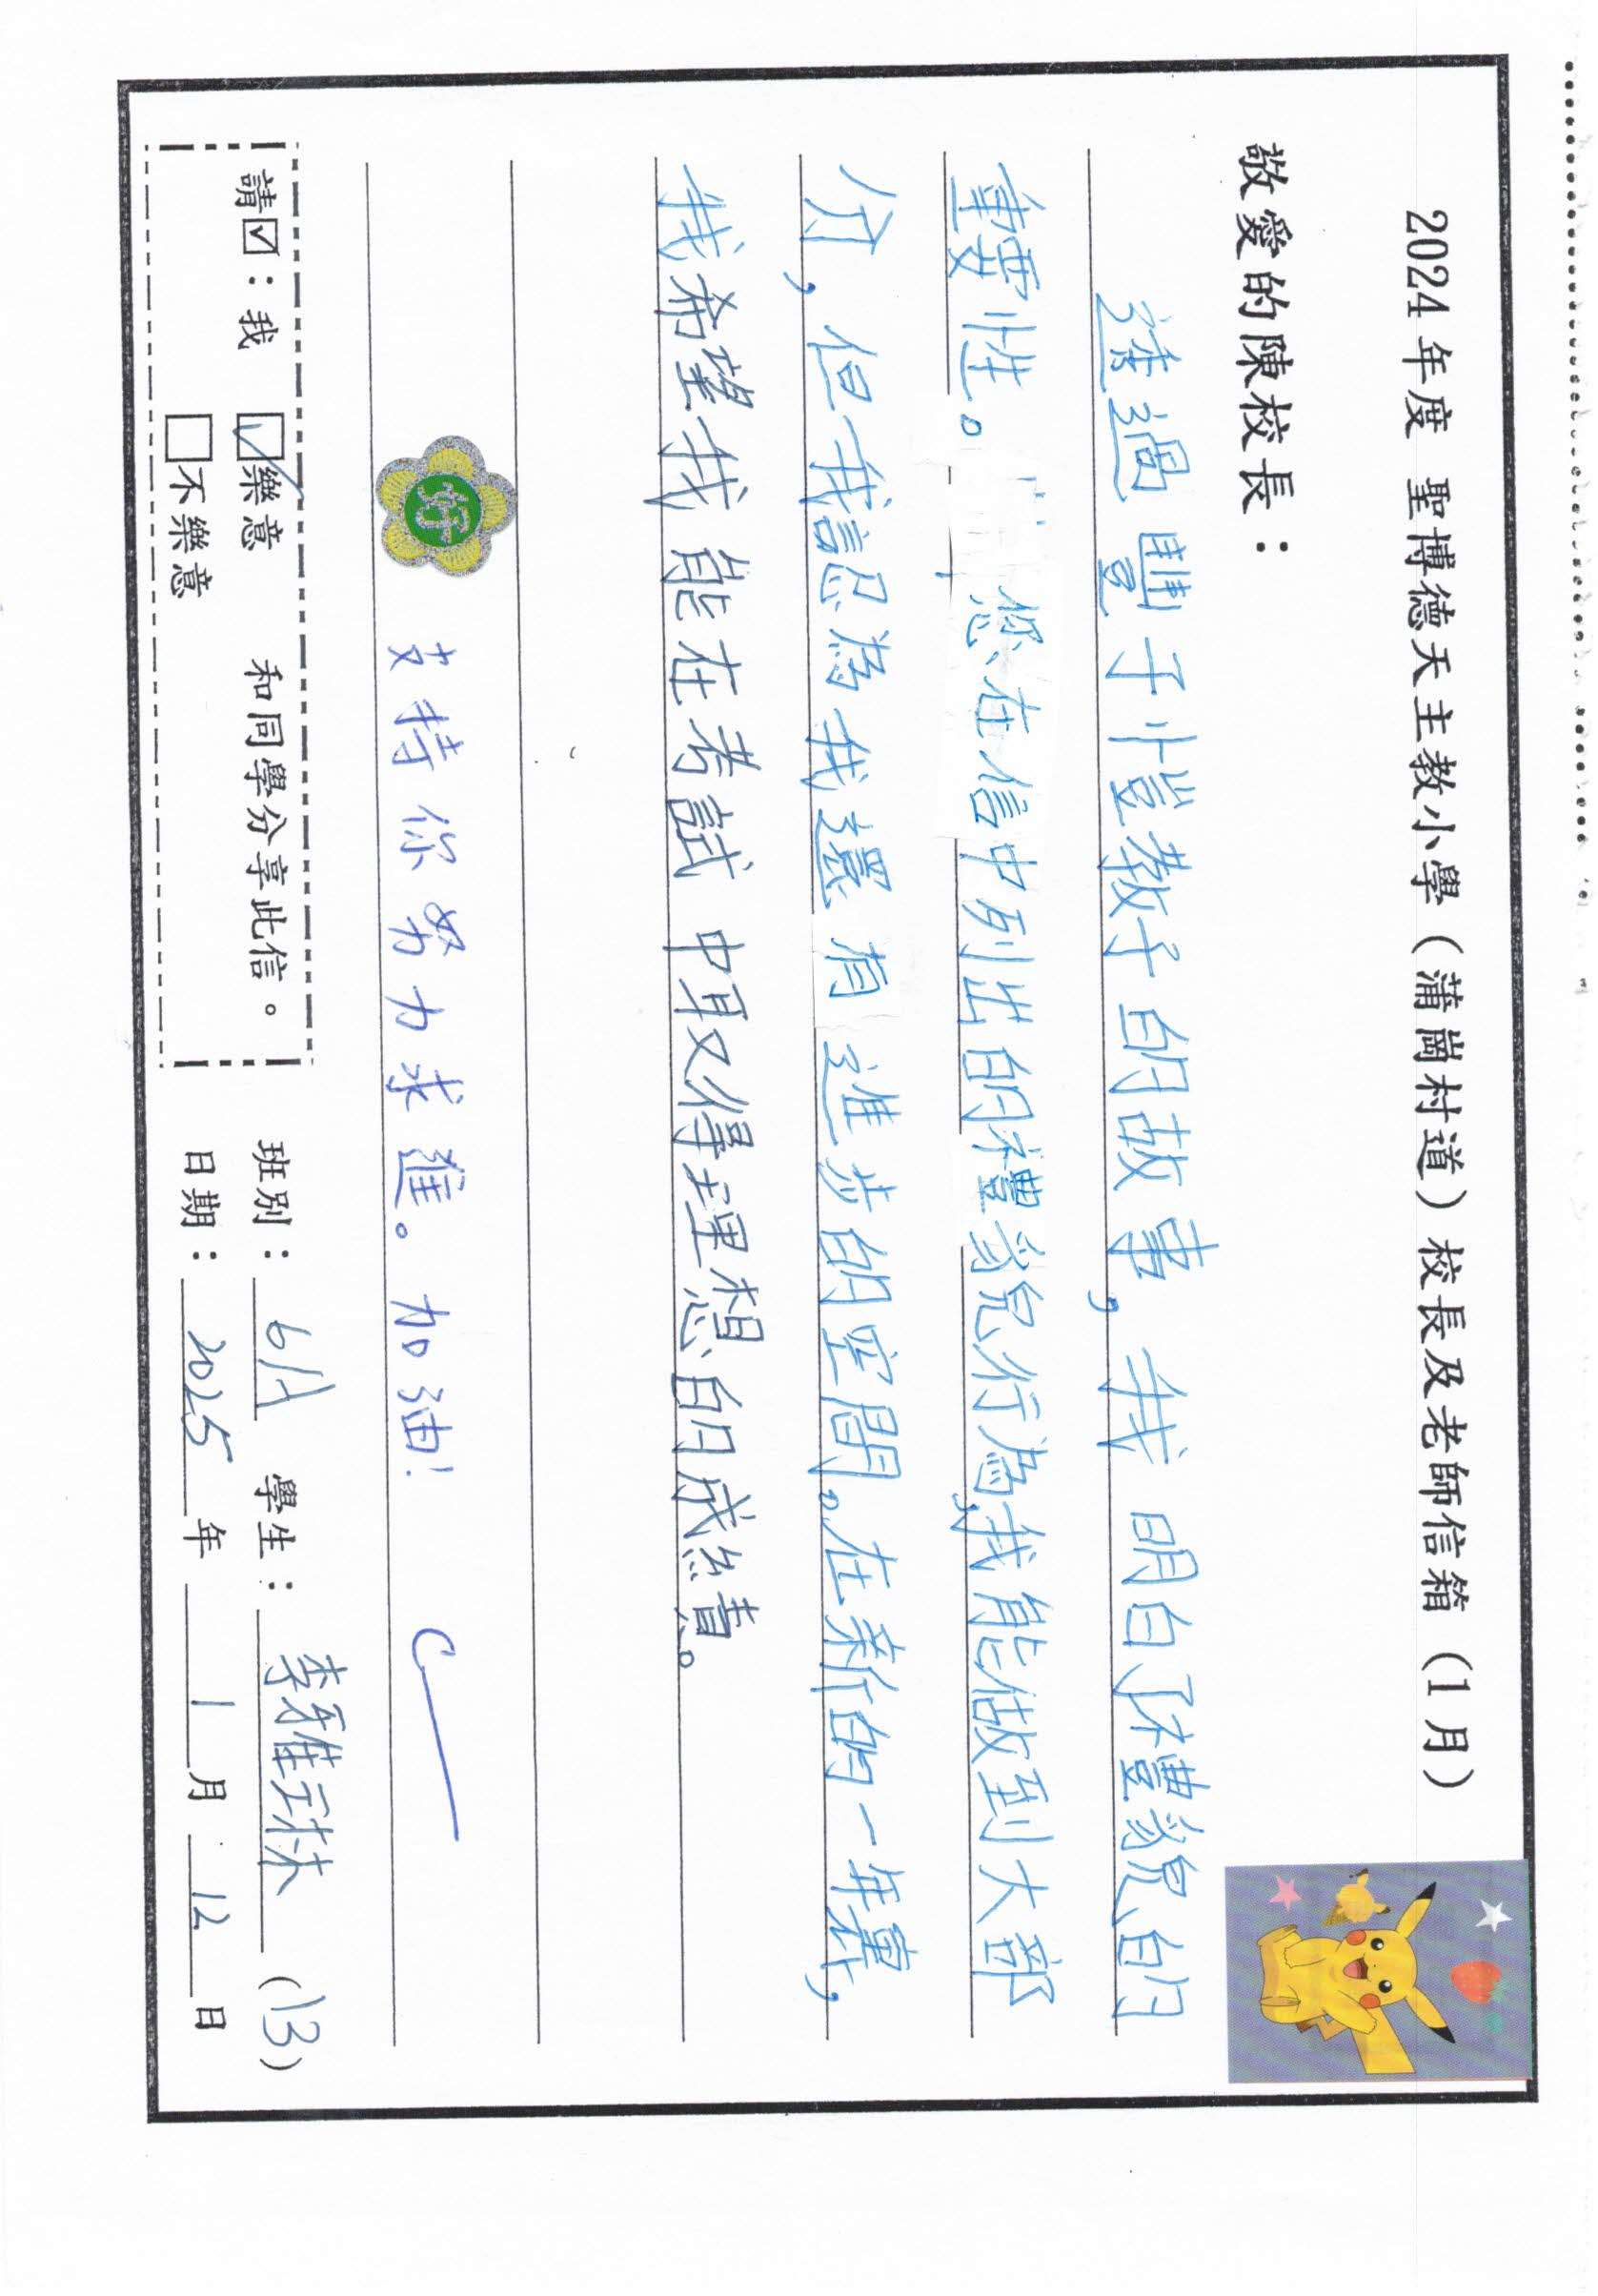 2024 年度 聖博德天主教小學（蒲崗村道）校長及老師信箱（1月）
敬愛的陳校長：
豐子愷教子的故事，我明白了禮貌的
重要性。您在信中列出的禮貌行為，我能做到大部
分，但我認為我還有進步的空間。在新的一年裏，
我希望我能在考試中取得理想的成績。
好
支持你努力求進。加油！
請☑：我 ☑樂意 和同學分享此信。
□不樂意
班別：6A 學生：李雅琳 (13)
日期：2025年1月12日